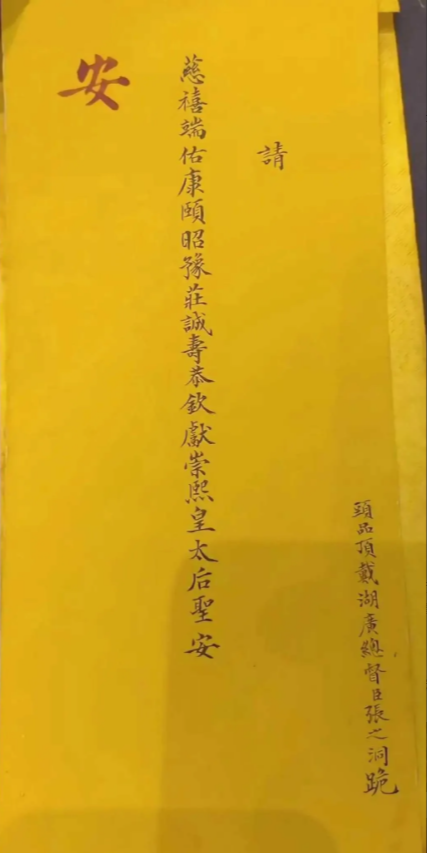 頭品頂戴湖廣總督臣張之洞跪
請
慈禧端佑康頤昭豫莊誠壽恭欽獻崇熙皇太后聖安
安